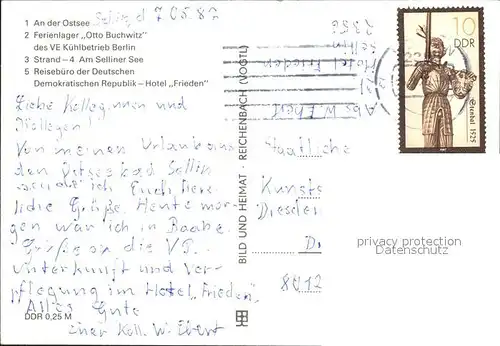 1 An der Ostsee
2 Ferienlager „Otto Buchwitz"
des VE Kühlbetrieb Berlin
3 Strand – 4 Am Selliner See
5 Reisebüro der Deutschen
Demokratischen Republik – Hotel „Frieden"
Sellin, d
Liebe Kolleginnen und
Kollegen!
Von meinen Urlaub aus
dem Ostseebad Sellin
sende ich Euch herz
liche Grüße. Heute mor-
gen war ich in Baabe.
Grüße an die VS.
Unterkunft und Ver-
pflegung im Hotel „Frieden".
Alles Gute
Euer Koll. W. Ebert
DDR 0,25 M
BILD UND HEIMAT · REICHENBACH (VOGTL)
Abs. W. Ebert
Hotel Frieden
Sellin
2356
10
DDR
Stendal 1525
Staatliche
Kunsts
Dresden
D
8012
privacy protection
Datenschutz